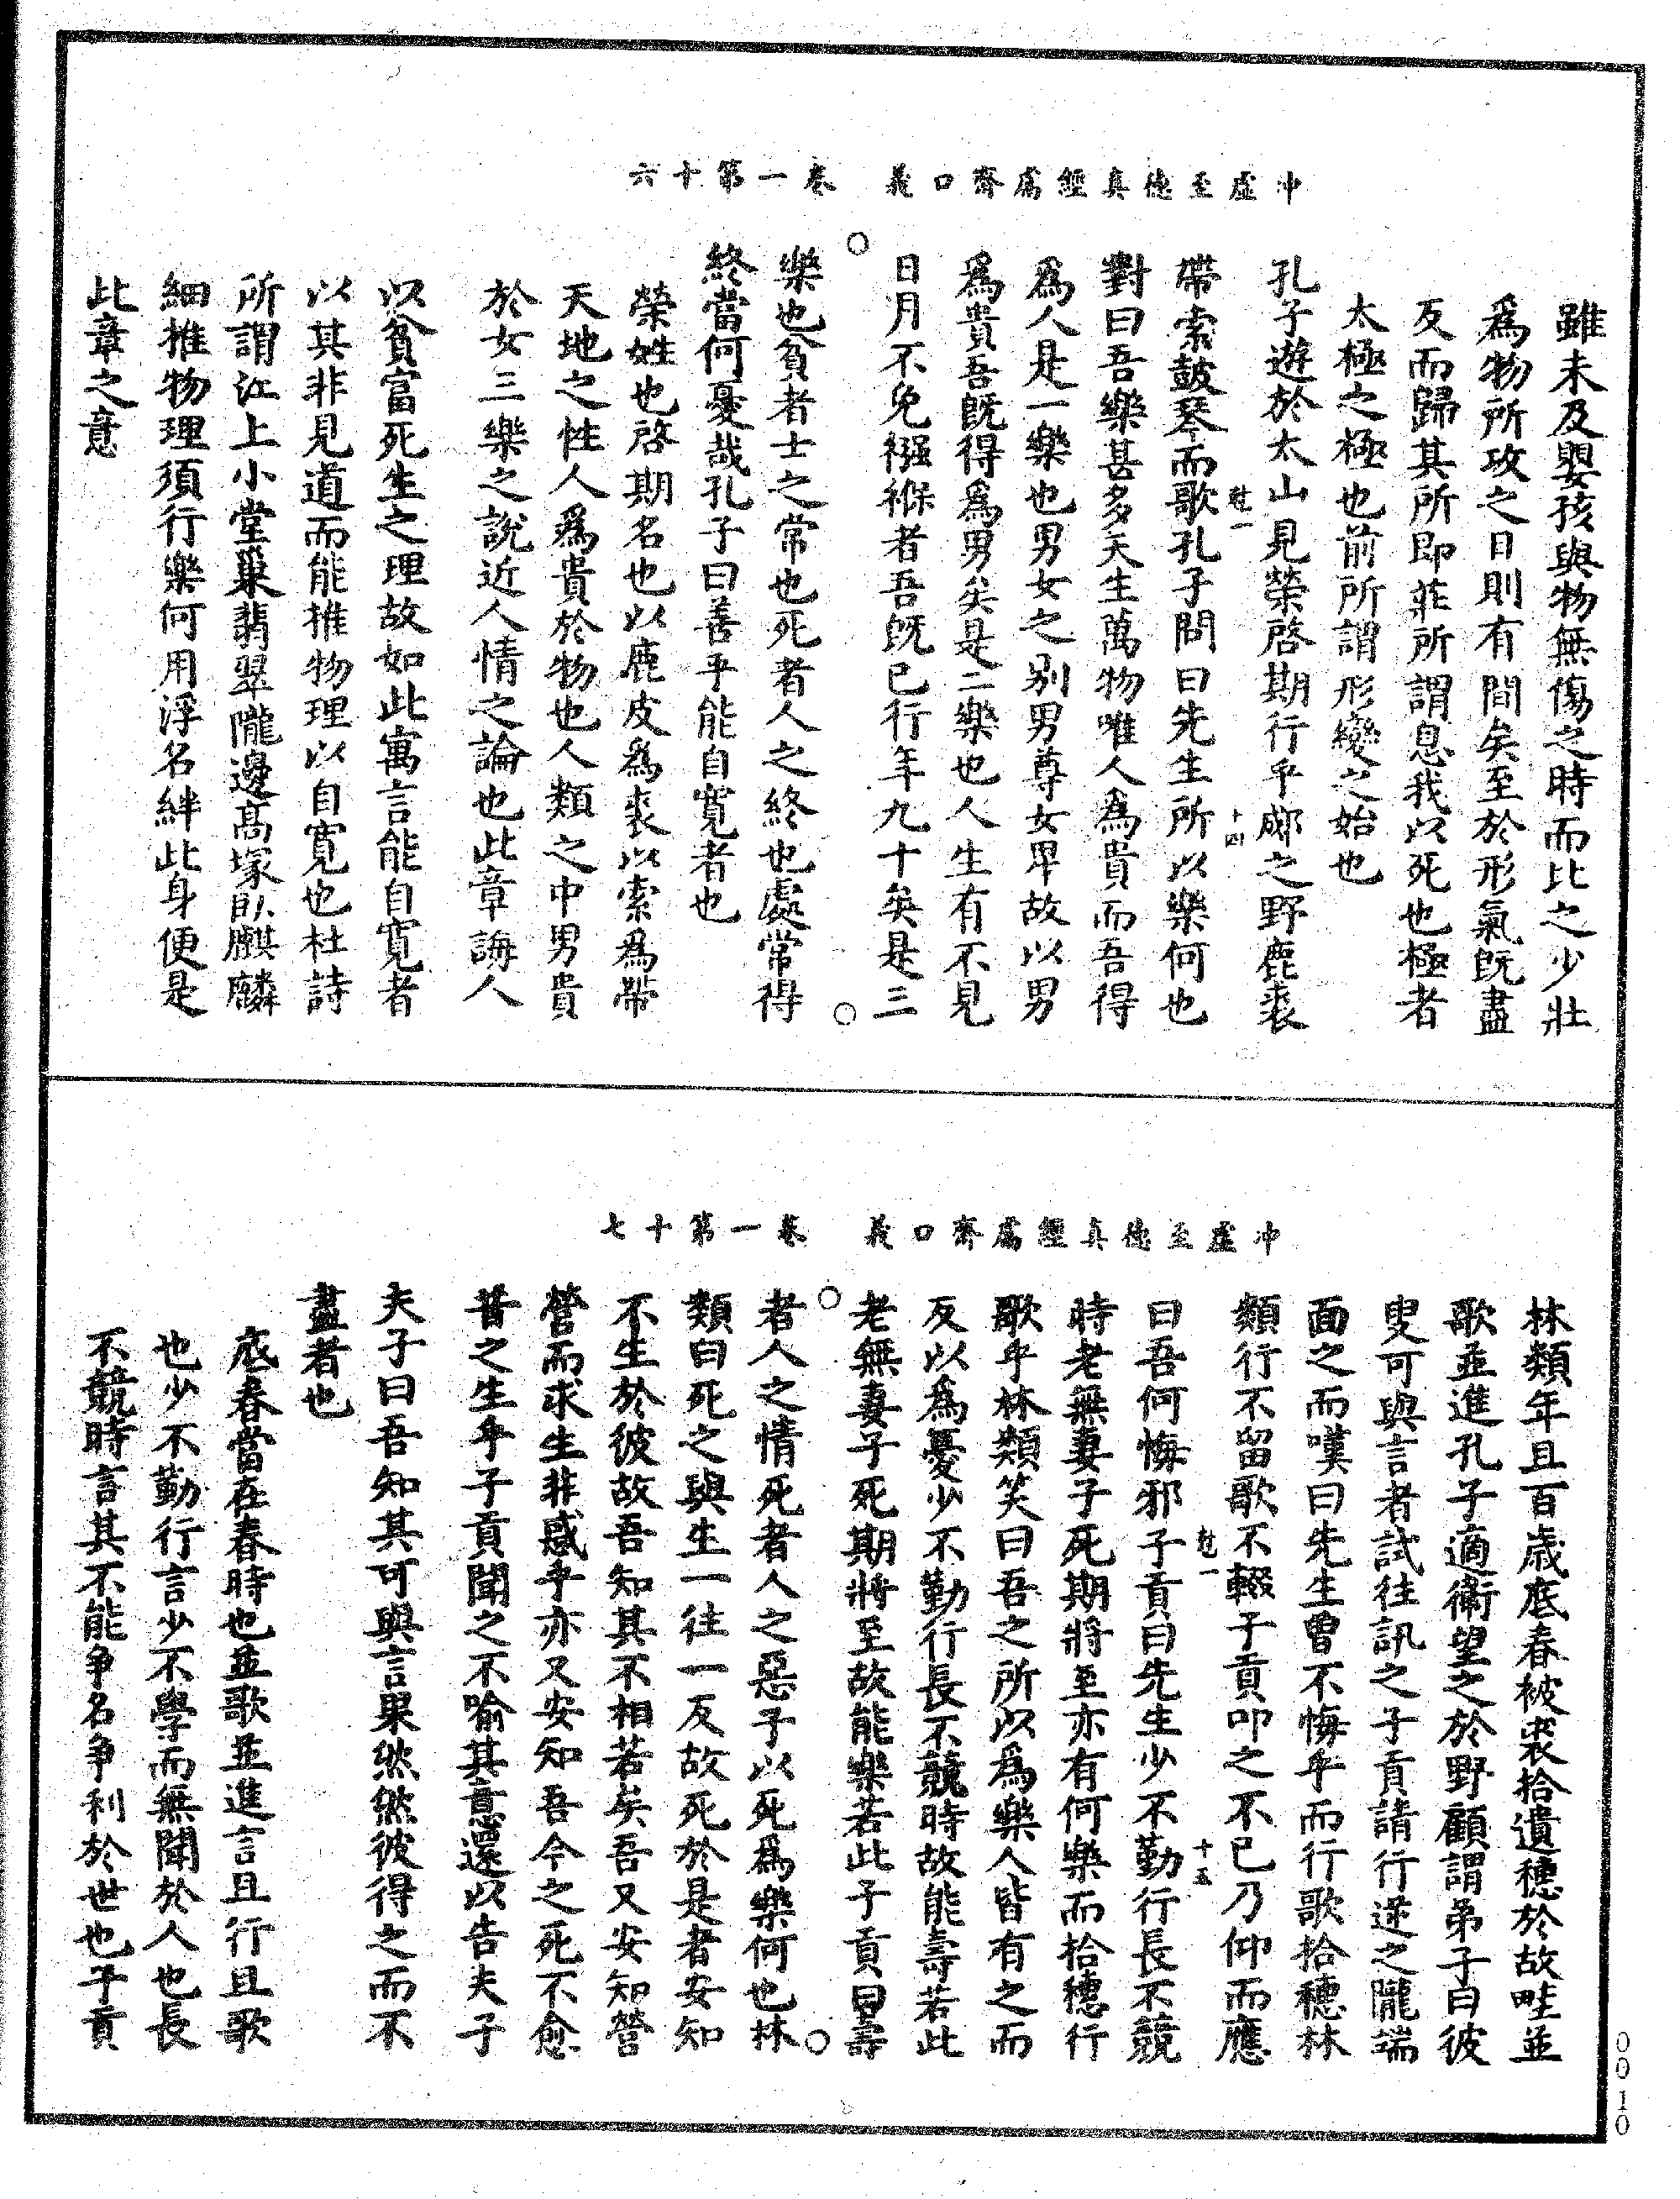 冲虛至德真經鬳齋口義　卷一第十六
雖未及嬰孩與物無傷之時而比之少壯
爲物所攻之日則有間矣至於形氣旣盡
反而歸其所即莊所謂息我以死也極者
太極之極也前所謂形變之始也
孔子遊於太山見榮啓期行乎郕之野鹿裘
魁一　十四
帶索鼓琴而歌孔子問曰先生所以樂何也
對曰吾樂甚多天生萬物唯人爲貴而吾得
爲人是一樂也男女之别男尊女卑故以男
爲貴吾旣得爲男矣是二樂也人生有不見
日月不免襁褓者吾旣已行年九十矣是三
樂也貧者士之常也死者人之終也處常得
終當何憂哉孔子曰善乎能自寬者也
榮姓也啓期名也以鹿皮爲裘以索爲帶
天地之性人爲貴於物也人類之中男貴
於女三樂之說近人情之論也此章誨人
以貧富死生之理故如此寓言能自寬者
以其非見道而能推物理以自寬也杜詩
所謂江上小堂巢翡翠隴邊髙塚臥麒麟
細推物理須行樂何用浮名絆此身便是
此章之意
冲虛至德真經鬳齋口義　卷一第十七
林類年且百歲底春被裘拾遺穗於故畦並
歌並進孔子適衛望之於野顧謂弟子曰彼
叟可與言者試往訊之子貢請行逆之隴端
面之而嘆曰先生曾不悔乎而行歌拾穗林
類行不留歌不輟子貢叩之不已乃仰而應
魁一　十五
曰吾何悔邪子貢曰先生少不勤行長不競
時老無妻子死期將至亦有何樂而拾穗行
歌乎林類笑曰吾之所以爲樂人皆有之而
反以爲憂少不勤行長不競時故能壽若此
老無妻子死期將至故能樂若此子貢曰壽
者人之情死者人之惡子以死爲樂何也林
類曰死之與生一往一反故死於是者安知
不生於彼故吾知其不相若矣吾又安知營
營而求生非惑乎亦又安知吾今之死不愈
昔之生乎子貢聞之不喻其意還以告夫子
夫子曰吾知其可與言果然然彼得之而不
盡者也
底春當在春時也並歌並進言且行且歌
也少不勤行言少不學而無聞於人也長
不競時言其不能争名争利於世也子貢
0010